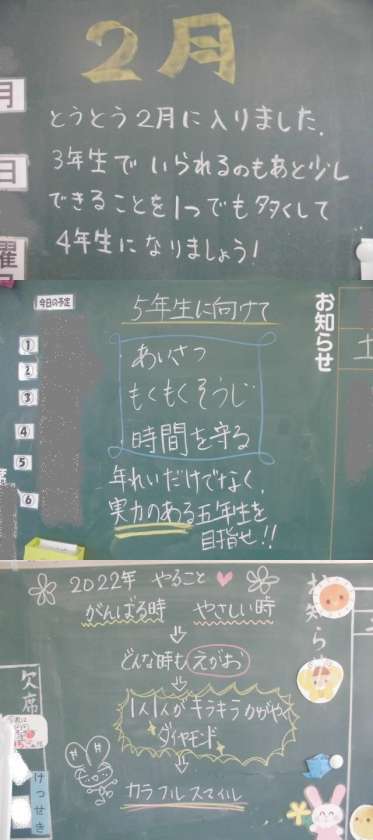 2月
月
とうとう2月に入りました.
日
3年生でいられるのもあと少し
できることを1つでも多くして
曜
4年生になりましょう!
今日の予定
5年生に向けて
お知らせ
①
②
③
④
⑤
⑥
あいさつ
もくもくそうじ
時間を守る
年れいだけでなく,
実力のある五年生を
目指せ!!
2022年 やること
がんばる時 やさしい時
どんな時も えがお
1人1人がキラキラかがやく
ダイヤモンド
カラフルスマイル
お知ら
欠席
けっせき